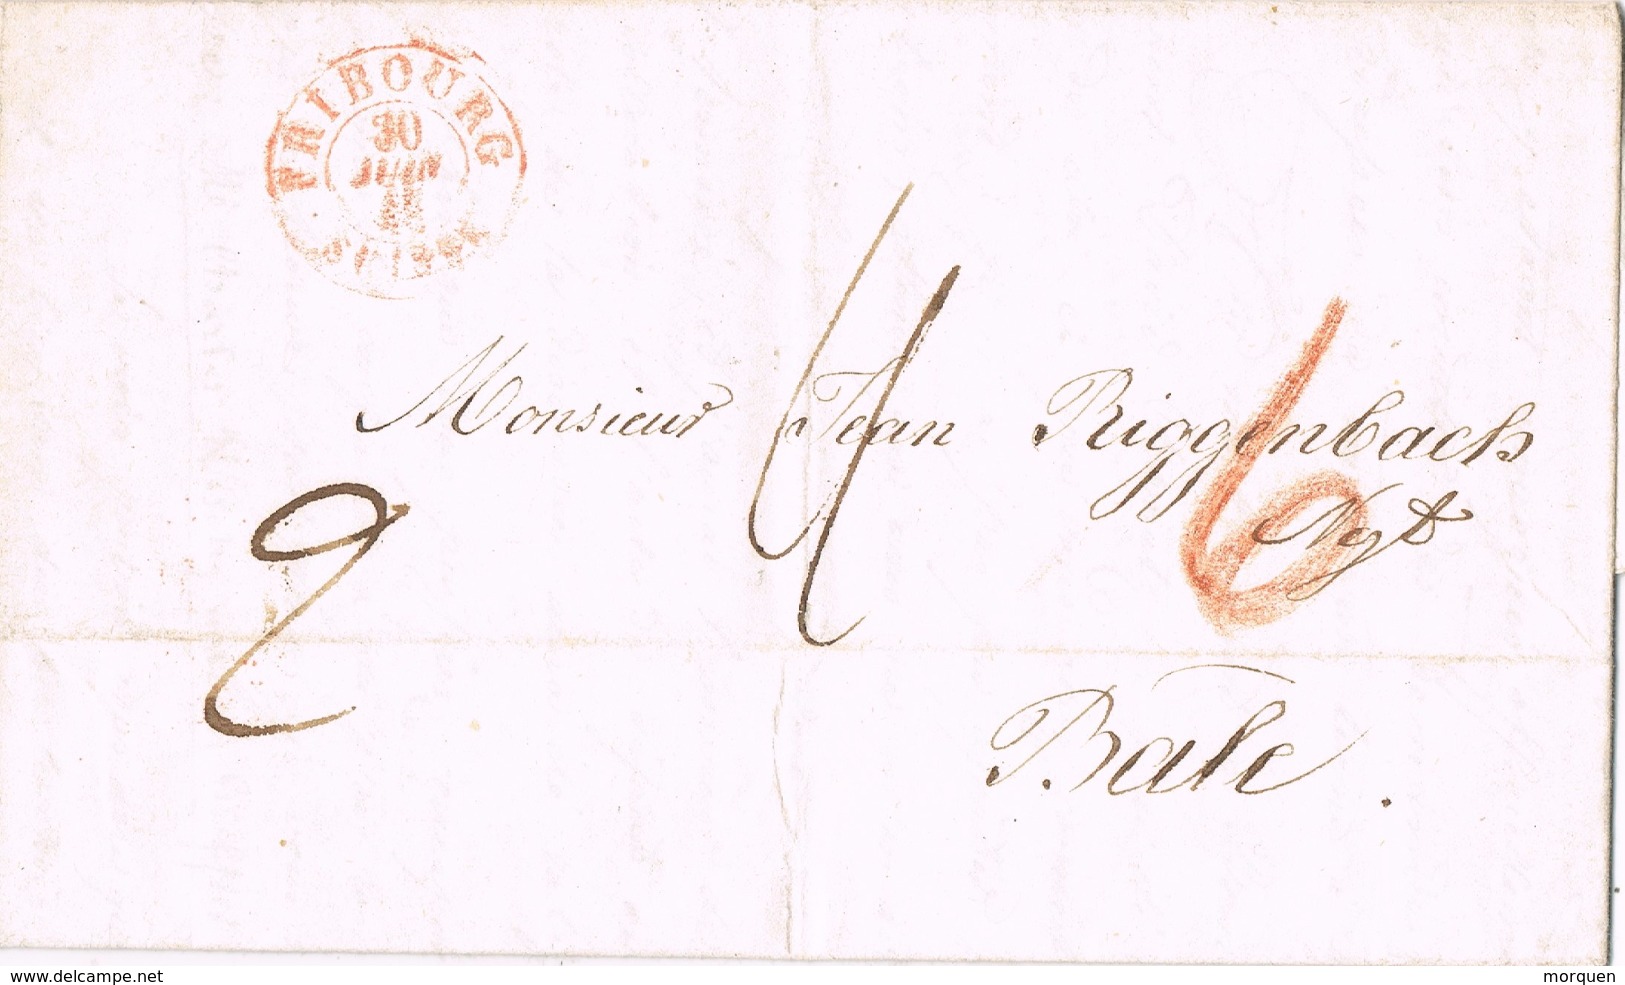 FRIBOURG
30
JUIN
SUISSE
Monsieur Jean Riggenbach
Ngt
2
4
6
Bâle.
www.delcampe.net
morquen